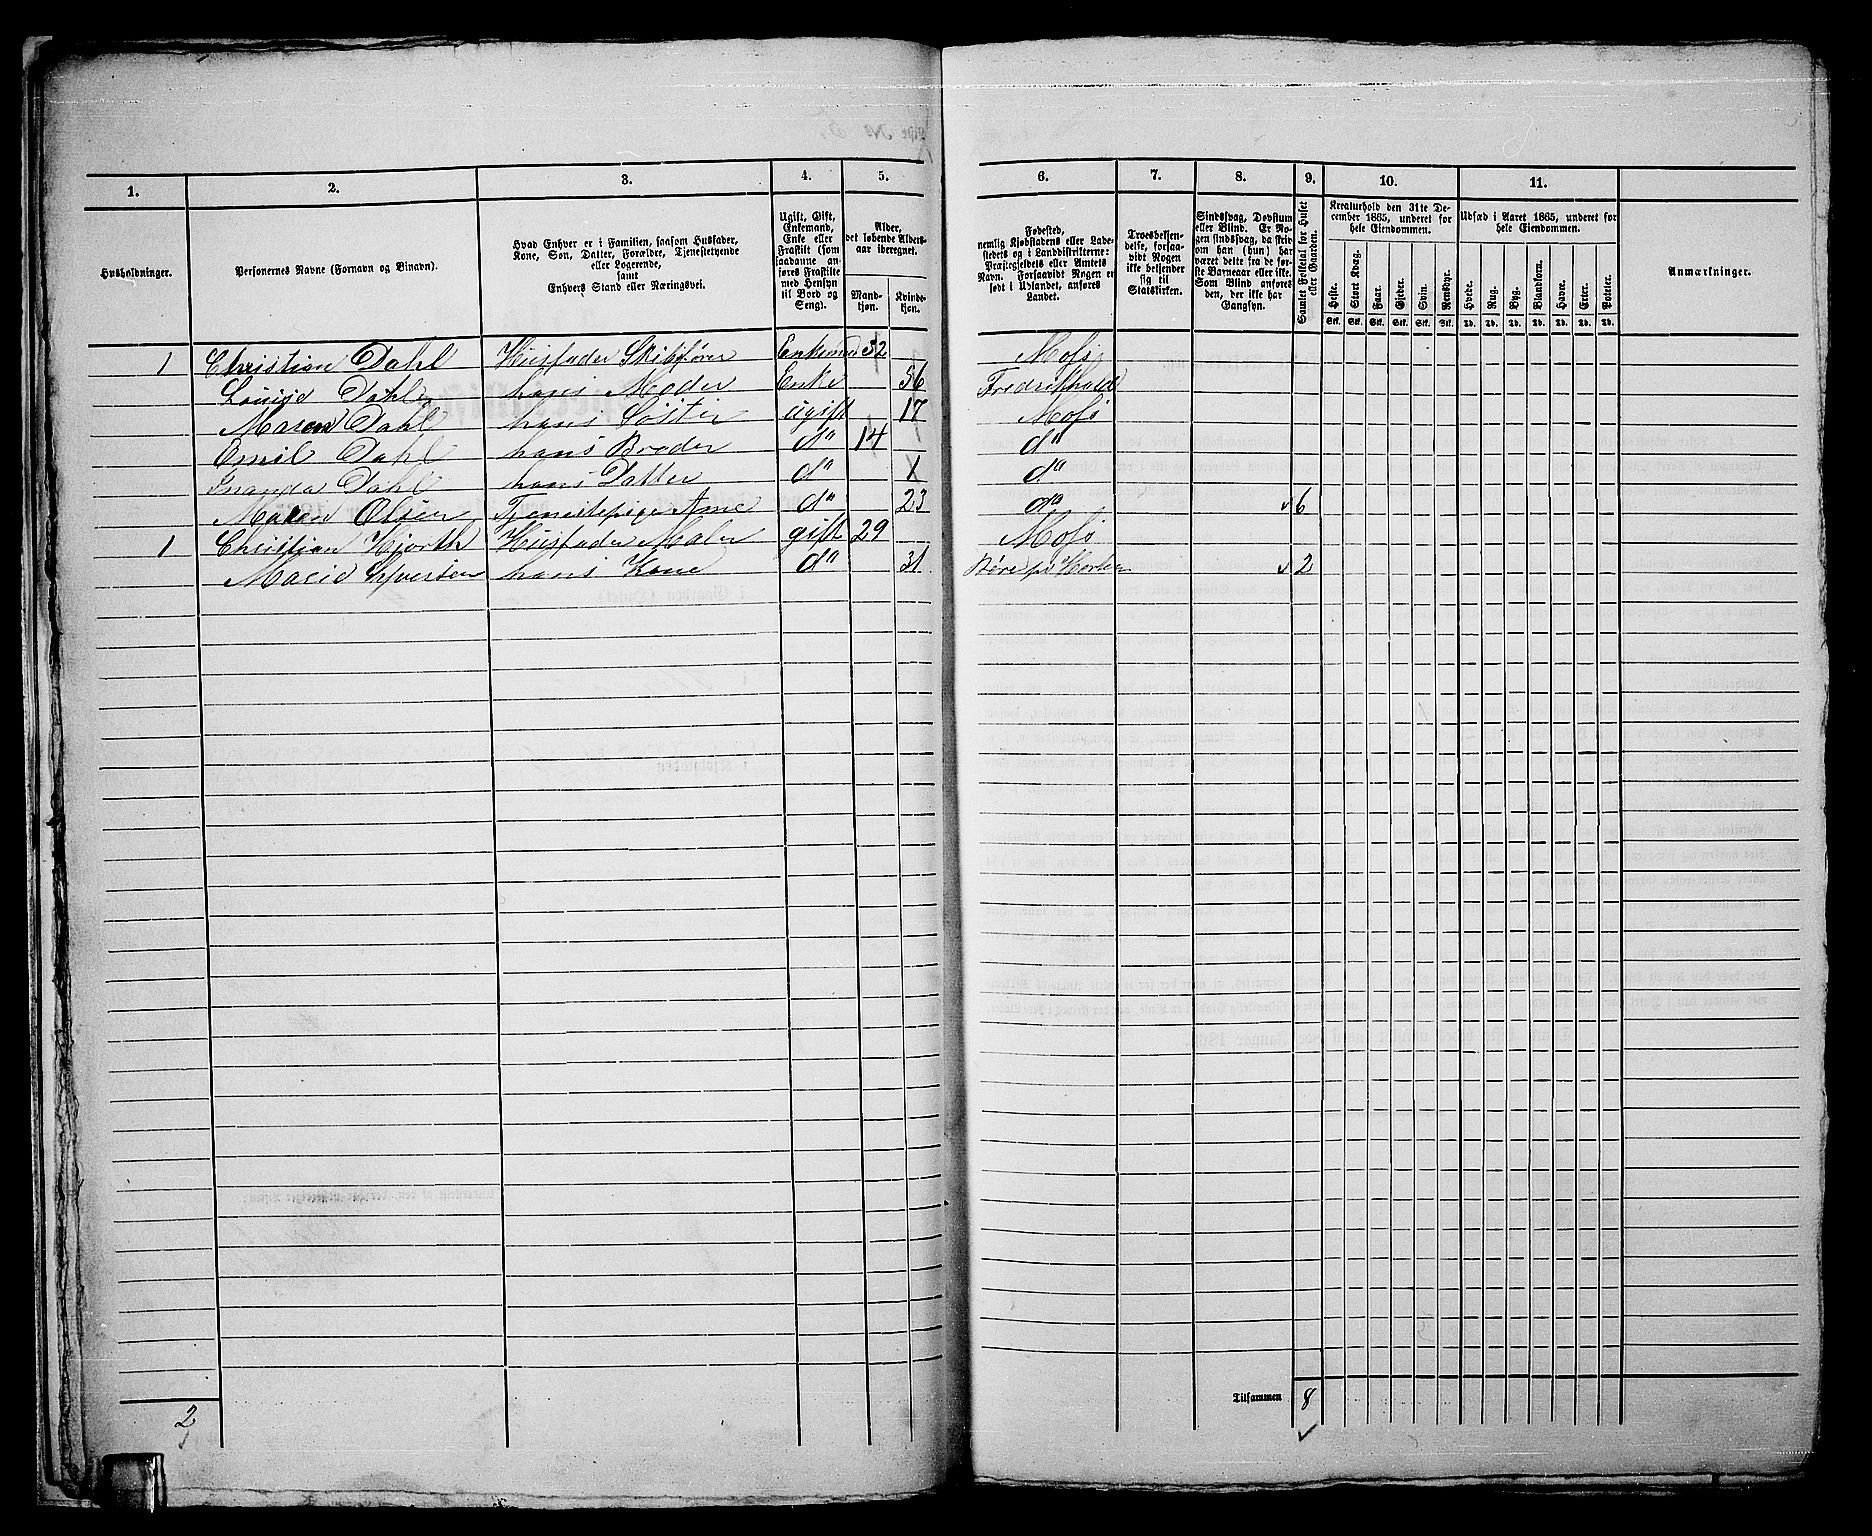 1.
2.
3.
4.
5.
6.
7.
8.
9.
10.
11.
Husholdninger.
Personernes Navne (Fornavn og Binavn).
Hvad Enhver er i Familien, saasom Husfader,
Kone, Søn, Datter, Forældre, Tjenestetyende
eller Logerende,
samt
Enhvers Stand eller Næringsvei.
Ugift, Gift,
Enkemand,
Enke eller
Fraskilt (som
saadanne an-
føres Fraskilte
med Hensyn
til Bord og
Seng).
Alder,
det løbende Alders-
aar iberegnet.
Mand-
kjøn.
Kvinde-
kjøn.
Fødested,
nemlig Kjøbstadens eller Lade-
stedets og i Landdistrikterne:
Præstegjeldets eller Amtets
Navn. Forsaavidt Nogen er
født i Udlandet, anføres
Landet.
Troesbekjen-
delse, forsaa-
vidt Nogen
ikke bekjender
sig til
Statskirken.
Sindssvag, Døvstum
eller Blind. Er No-
gen sindssvag, da skriv
om han (hun) har
været dette fra de før-
ste Barneaar eller ikke.
Som Blind anføres
den, der ikke har
Gangsyn.
Samlet Folketal for Huset
eller Gaarden.
Kreaturhold den 31te De-
cember 1865, underet for
hele Eiendommen.
Heste.
Stort Kvæg.
Faar.
Gjeder.
Svin.
Rensdyr.
Stk. Stk. Stk. Stk. Stk. Stk.
Udsæd i Aaret 1865, underet for
hele Eiendommen.
Hvede.
Rug.
Byg.
Blandkorn.
Havre.
Erter.
Poteter.
Td. Td. Td. Td. Td. Td. Td.
Anmærkninger.
1 Christian Dahl Husfader Skibsfører Enkemd 32 Moss
Dahl hans Moder Enke 56 Fredrikshald
Maren Dahl hans Søster ugift 17 Moss
Emil Dahl hans Broder do 14 do
Dahl hans Datter do 1 do
Maren Olsen Tjenestepige do 23 do 6
1 Christian Hjorth Husfader Maler gift 29 Moss
Marie Syversen hans Kone do 31 2
Tilsammen 8
2